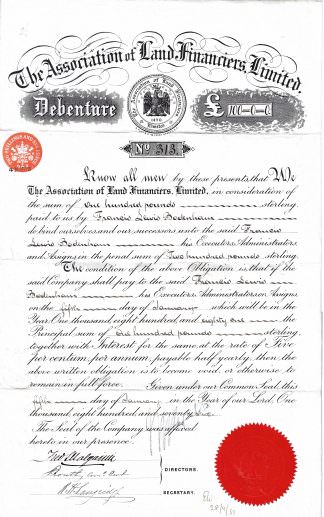 The Association of Land Financiers, Limited.
Debenture
£ 100-0-0
No. 313.
Know all men by these presents, that We
The Association of Land Financiers, Limited, in consideration of
the sum of One hundred pounds sterling
paid to us by Francis Lewis Bodenham
do bind ourselves and our successors unto the said Francis
Lewis Bodenham his Executors, Administrators
and Assigns in the penal sum of Two hundred pounds sterling.
The condition of the above Obligation is, that if the
said Company shall pay to the said Francis Lewis
Bodenham his Executors Administrators or Assigns
on the fifth day of January which will be in the
Year One thousand eight hundred and eighty one the
Principal sum of One hundred pounds sterling
together with Interest for the same at the rate of Five
per centum per annum, payable half yearly, then the
above written obligation is to become void, or otherwise to
remain in full force. Given under our Common Seal, this
fifth day of January in the Year of our Lord, One
thousand, eight hundred and seventy
The Seal of the Company was affixed
hereto in our presence.
DIRECTORS.
SECRETARY.